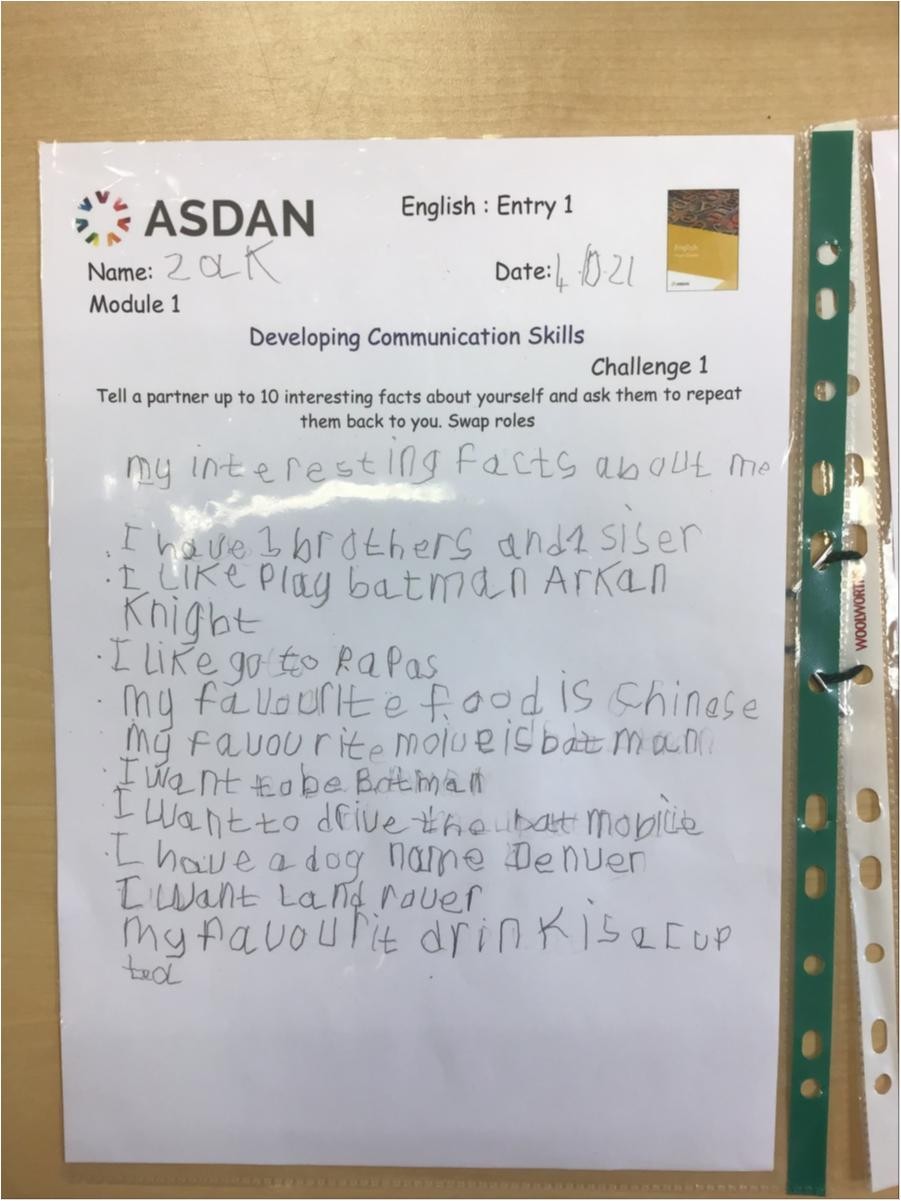 ASDAN
English : Entry 1
English
Name: Zak
Date: 4.10.21
Module 1
Developing Communication Skills
Challenge 1
Tell a partner up to 10 interesting facts about yourself and ask them to repeat
them back to you. Swap roles
my interesting facts about me
. I have 3 brothers and 1 siser
. I LIKE Play batman ArKan
Knight
. I like go to PaPas
. my favourite food is Chinese
my favourite moive is bat man
. I want to be Batman
I want to drive the bat mobile
. I have a dog name Denver
I want Land rover
my favourit drink is a cup
tea
WOOLWORT